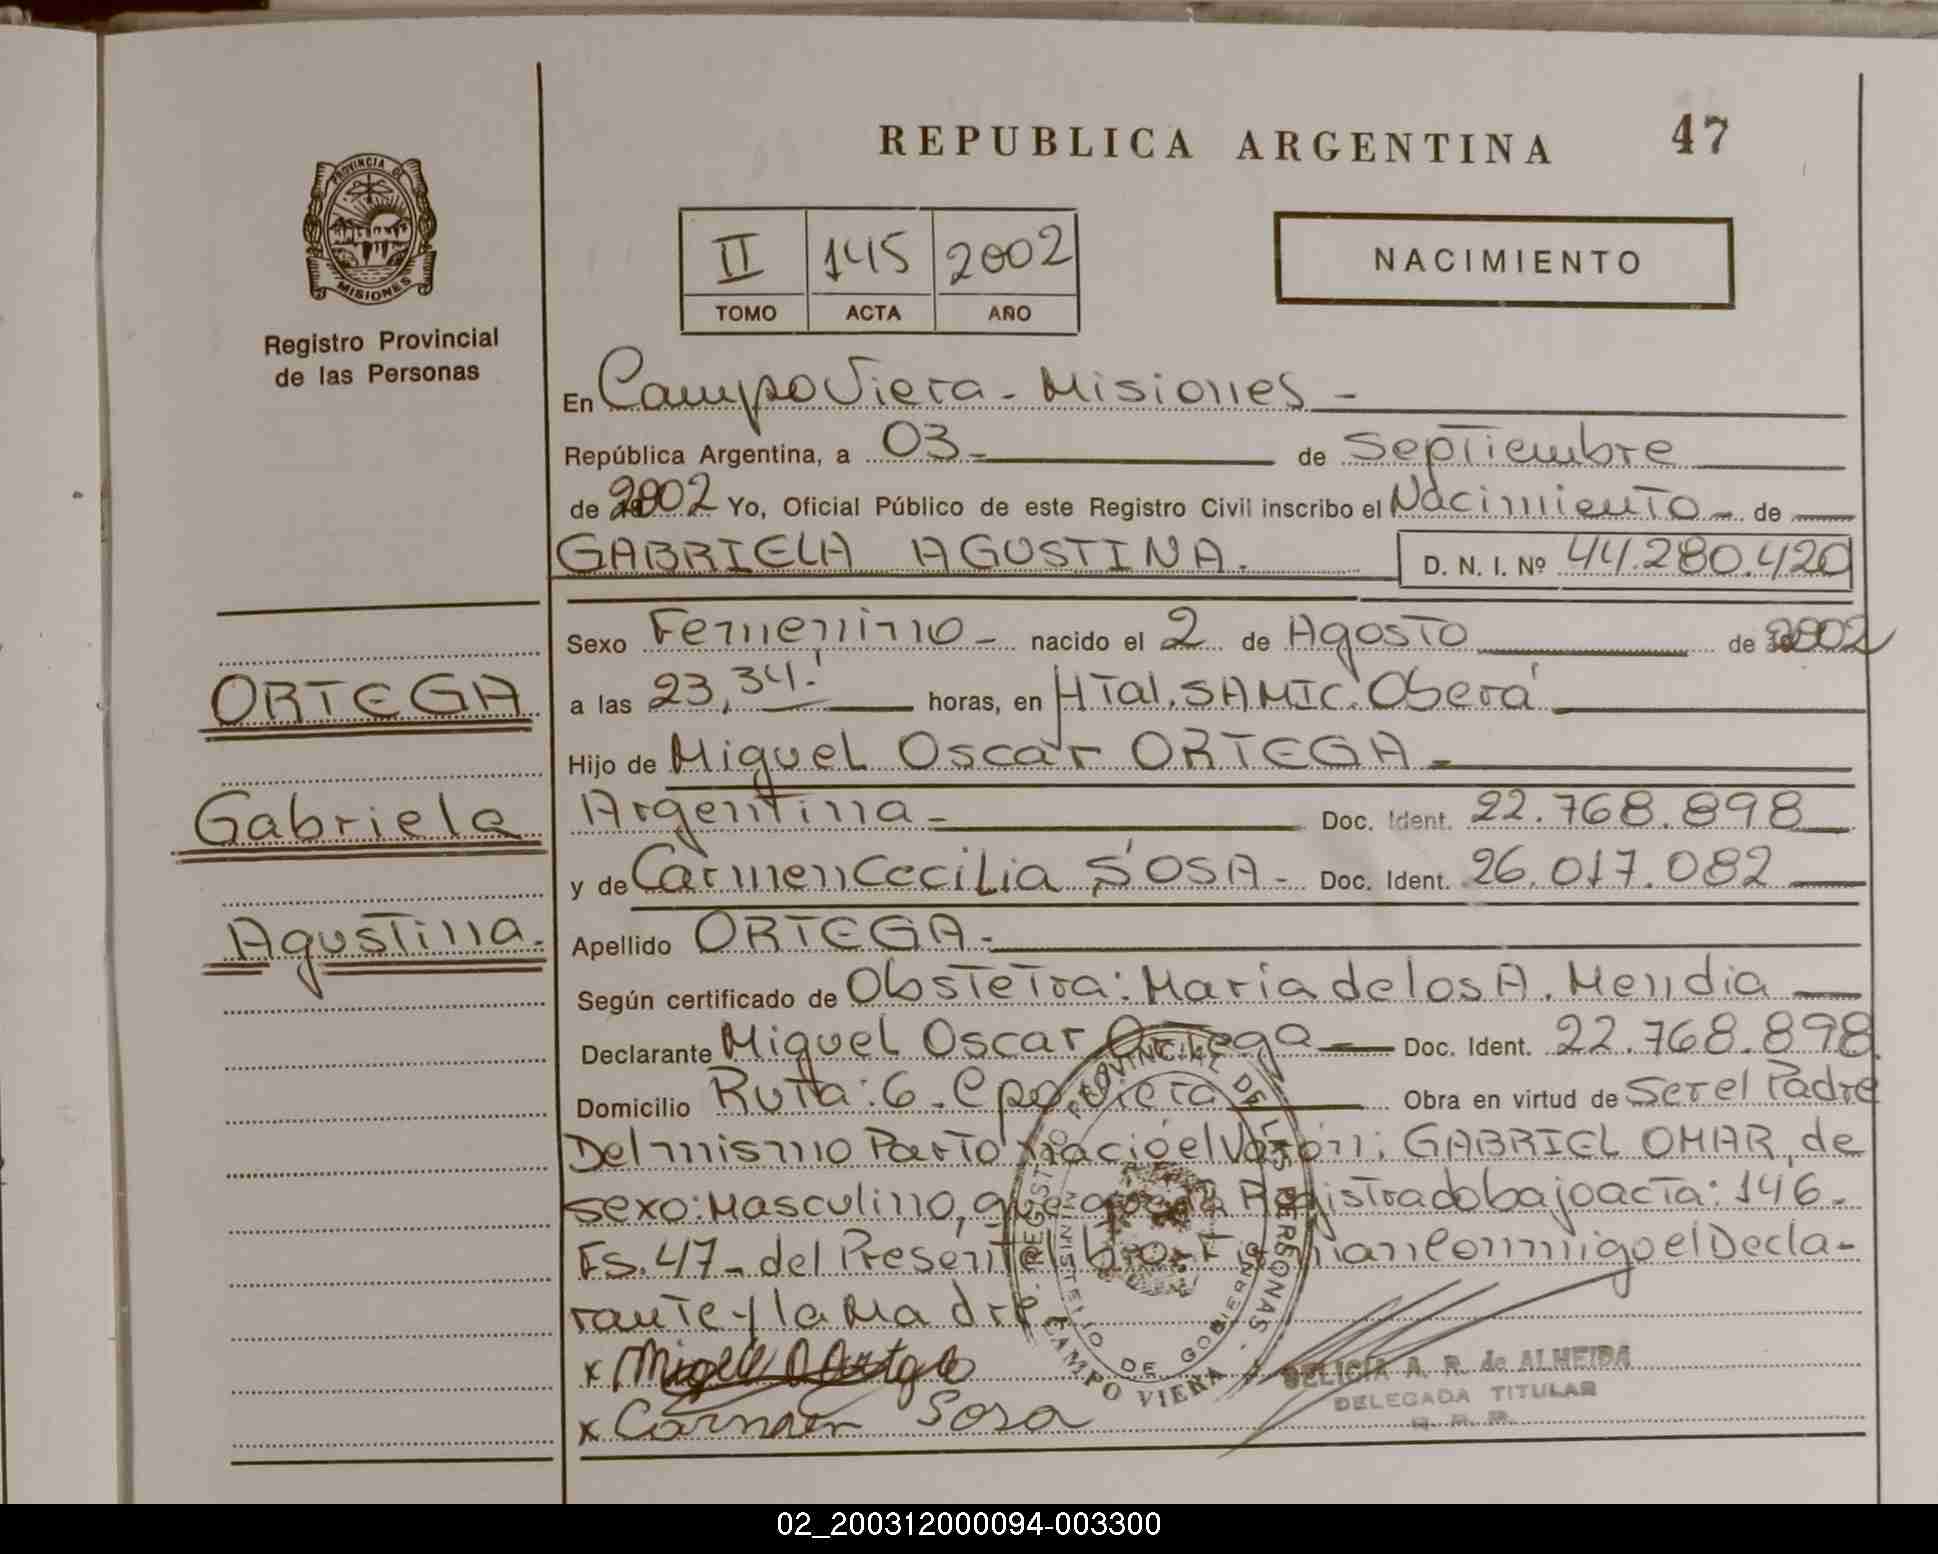 REPUBLICA ARGENTINA 47
PROVINCIA DE
MISIONES
Registro Provincial
de las Personas
II 145 2002
TOMO ACTA AÑO
NACIMIENTO
En Campo Viera - Misiones -
República Argentina, a 03 - de Septiembre
de 2002 Yo, Oficial Público de este Registro Civil inscribo el Nacimiento - de
GABRIELA AGUSTINA. D. N. I. Nº 44.280.420
Sexo Femenino - nacido el 2 de Agosto de 2002
a las 23,34.' horas, en HTal. SAMIC. Oberá
Hijo de Miguel Oscar ORTEGA -
Argentina - Doc. Ident. 22.768.898
y de Carmen Cecilia SOSA - Doc. Ident. 26.017.082
Apellido ORTEGA -
Según certificado de Obstetra: María de los A. Mendia
Declarante Miguel Oscar Ortega Doc. Ident. 22.768.898
Domicilio Ruta: 6. Cpo Viera Obra en virtud de Ser el Padre
Del mismo Parto nació el Varón: GABRIEL OMAR, de
sexo: Masculino, que queda Registrado bajo acta: 146 -
Fs. 47 - del Presente Libro - Firman conmigo el Decla-
rante y la Madre
x Miguel O Ortega
x Carmen Sosa
ORTEGA
Gabriela
Agustina -
REGISTRO PROVINCIAL DE LAS PERSONAS
MINISTERIO DE GOBIERNO
CAMPO VIERA
DELICIA A. R. de ALMEIDA
DELEGADA TITULAR
02_200312000094-003300